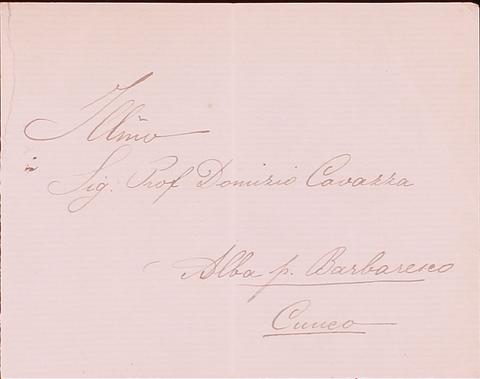 Illmo
Sig. Prof Domizio Cavazza
Alba p. Barbaresco
Cuneo